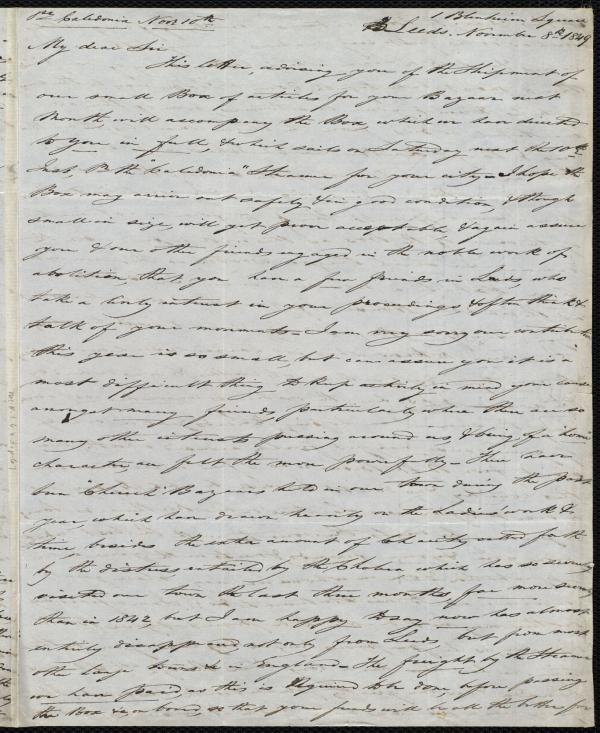 Pr. Caledonia Novr 10th
1 Blenheim Square
Leeds. November 8th 1849
My dear Sir
This letter, advising you of the Shipment of
our small Box of articles for your Bazaar next
Month, will accompany the Box, which we have directed
to you in full, & which sails on Saturday next the 10th
Inst, Pr the "Caledonia" Steamer for your city - I hope the
Box may arrive out safely & in good condition, & though
small in size, will yet prove acceptable, & again assure
you & our other friends engaged in the noble work of
abolition, that you have a few friends in Leeds, who
take a lively interest in your proceedings, & often think &
talk of your movements - I am very sorry our contribution
this year is so small, but can assure you it is a
most difficult thing to keep actively in mind your cause
amongst many friends, particularly where there are so
many other interests pressing around us & being of a home
character, are felt the more powerfully - There have
been "Church" Bazaars held in our town during the past
year, which have drawn heavily on the Ladies work &
time, besides the extra amount of Charity called forth
by the distress entailed by the Cholera which has so severely
visited our town the last three months far more severely
than in 1842, but I am happy to say now has almost
entirely disappeared not only from Leeds but from most
other large towns in England - The freight by the Steamer
we have paid, as this is required to be done before passing
the Box on board, so that your funds will be all the better for